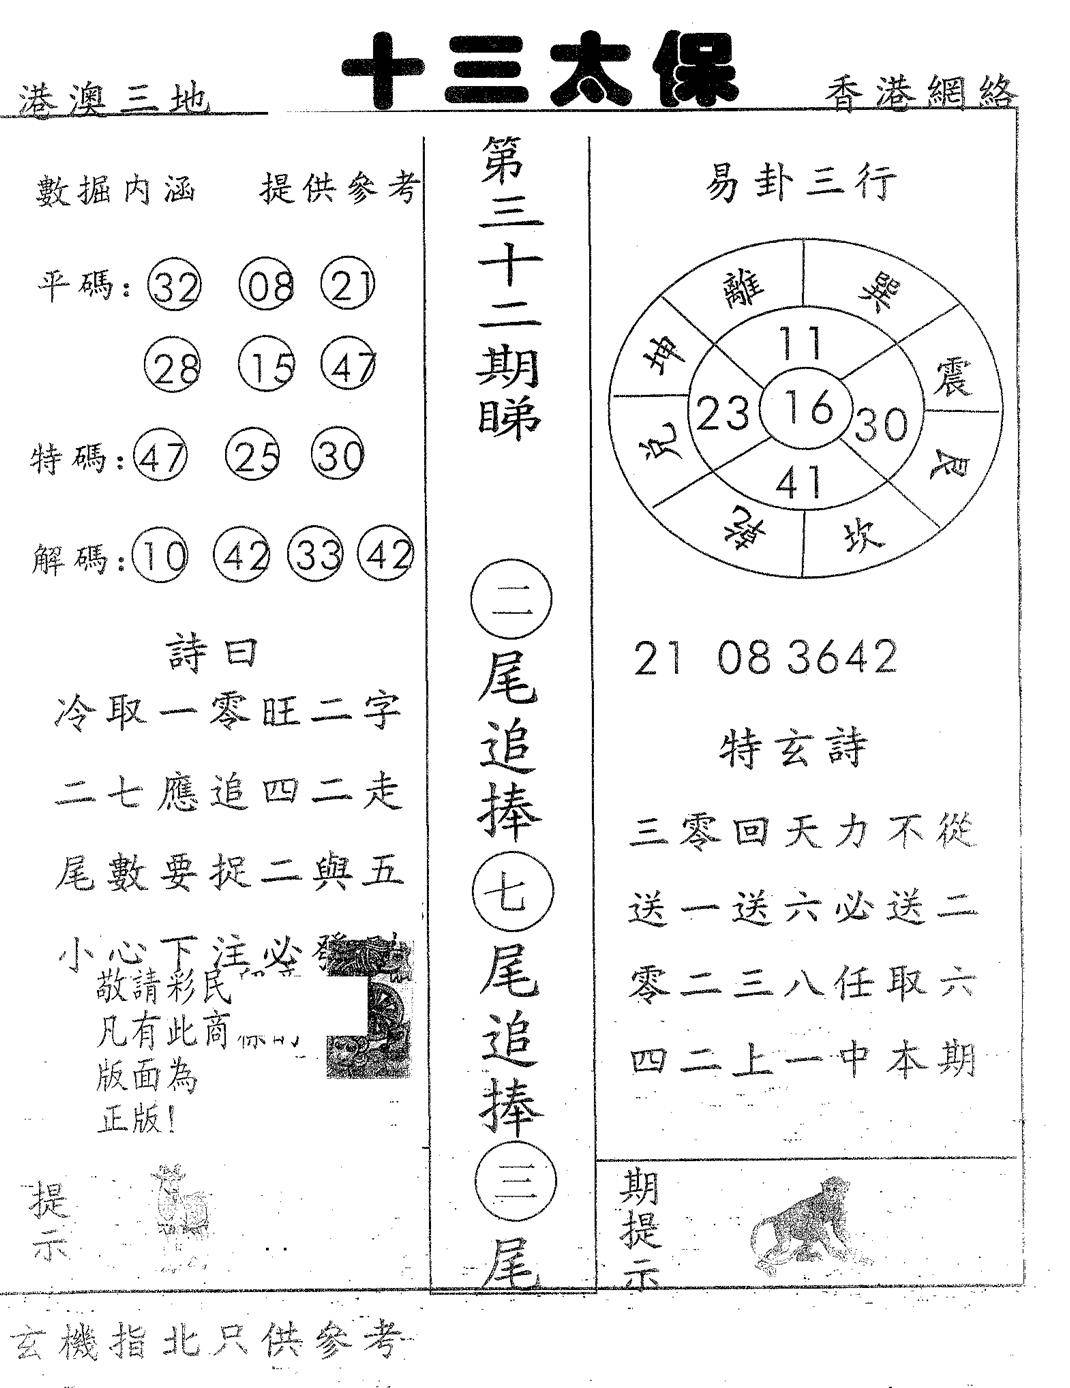 十三太保
港澳三地
香港網絡
數掘内涵 提供參考
平碼: 32 08 21
28 15 47
特碼: 47 25 30
解碼: 10 42 33 42
詩曰
冷取一零旺二字
二七應追四二走
尾數要捉二與五
小心下注必發
敬請彩民
凡有此商
版面為
正版!
提示
第三十二期睇
二尾追捧七尾追捧三尾
易卦三行
離 巽
坤 震
兑 艮
乾 坎
11
23 16 30
41
21 08 36 42
特玄詩
三零回天力不從
送一送六必送二
零二三八任取六
四二上一中本期
期提示
玄機指北只供參考